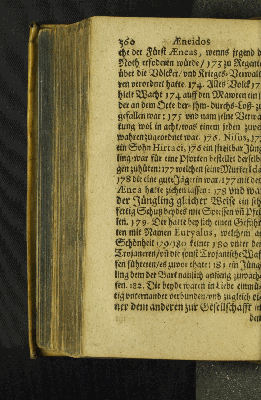 360 Æneidos
che der Fürst Æneas, wenns irgend d
Noth erfodern würde / 173 zu Regente
über die Völcker/ und Krieges-Verwalt
ren verordnet hatte. 174. Alles Volck 17
hielt Wacht 174 auff den Mauren ein j
der an dem Orte der-ihm-durchs-Loß-z
gefallen war : 175 und nam seine Verwa
tung wol in acht/ was einem jeden zuver
wahren zugeordnet war. 175. Nisus, 17
ein Sohn Hirtaci, 176 ein streitbar Jüng
ling war für eine Pforten bestellet derselbi
gen zuhüten: 177 welchen seine Mutter Ida
178 die eine gute Jägerin war. 177 mit dem
Ænea hatte ziehen lassen : 178 und war
der Jüngling gleicher Weise ein sehr
fertig Schütz beydes mit Spiessen uñ Pfei
len. 179. Der hatte bey sich einen Gefähr
ten mit Namen Euryalus, welchem an
Schönheit 179/180 keiner 180 unter den
Trojanern/ uñ die sonst Trojanische Waf
fen führeten/ es zuvor thate: 181 ein Jüng
ling dem der Bart naulich anfieng zuwachs
sen. 182. Die beyde waren in Liebe einmü-
tig unternander verbunden/ uñ zugleich ei
ner dem anderen zur Gesellschafft in
den